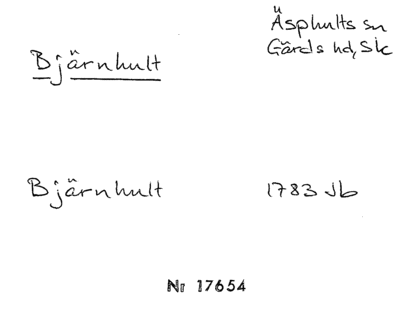 Äsphults sn
Bjärnhult
Gärds hd, Sk
Bjärnhult
1783 Jb
Nr 17654